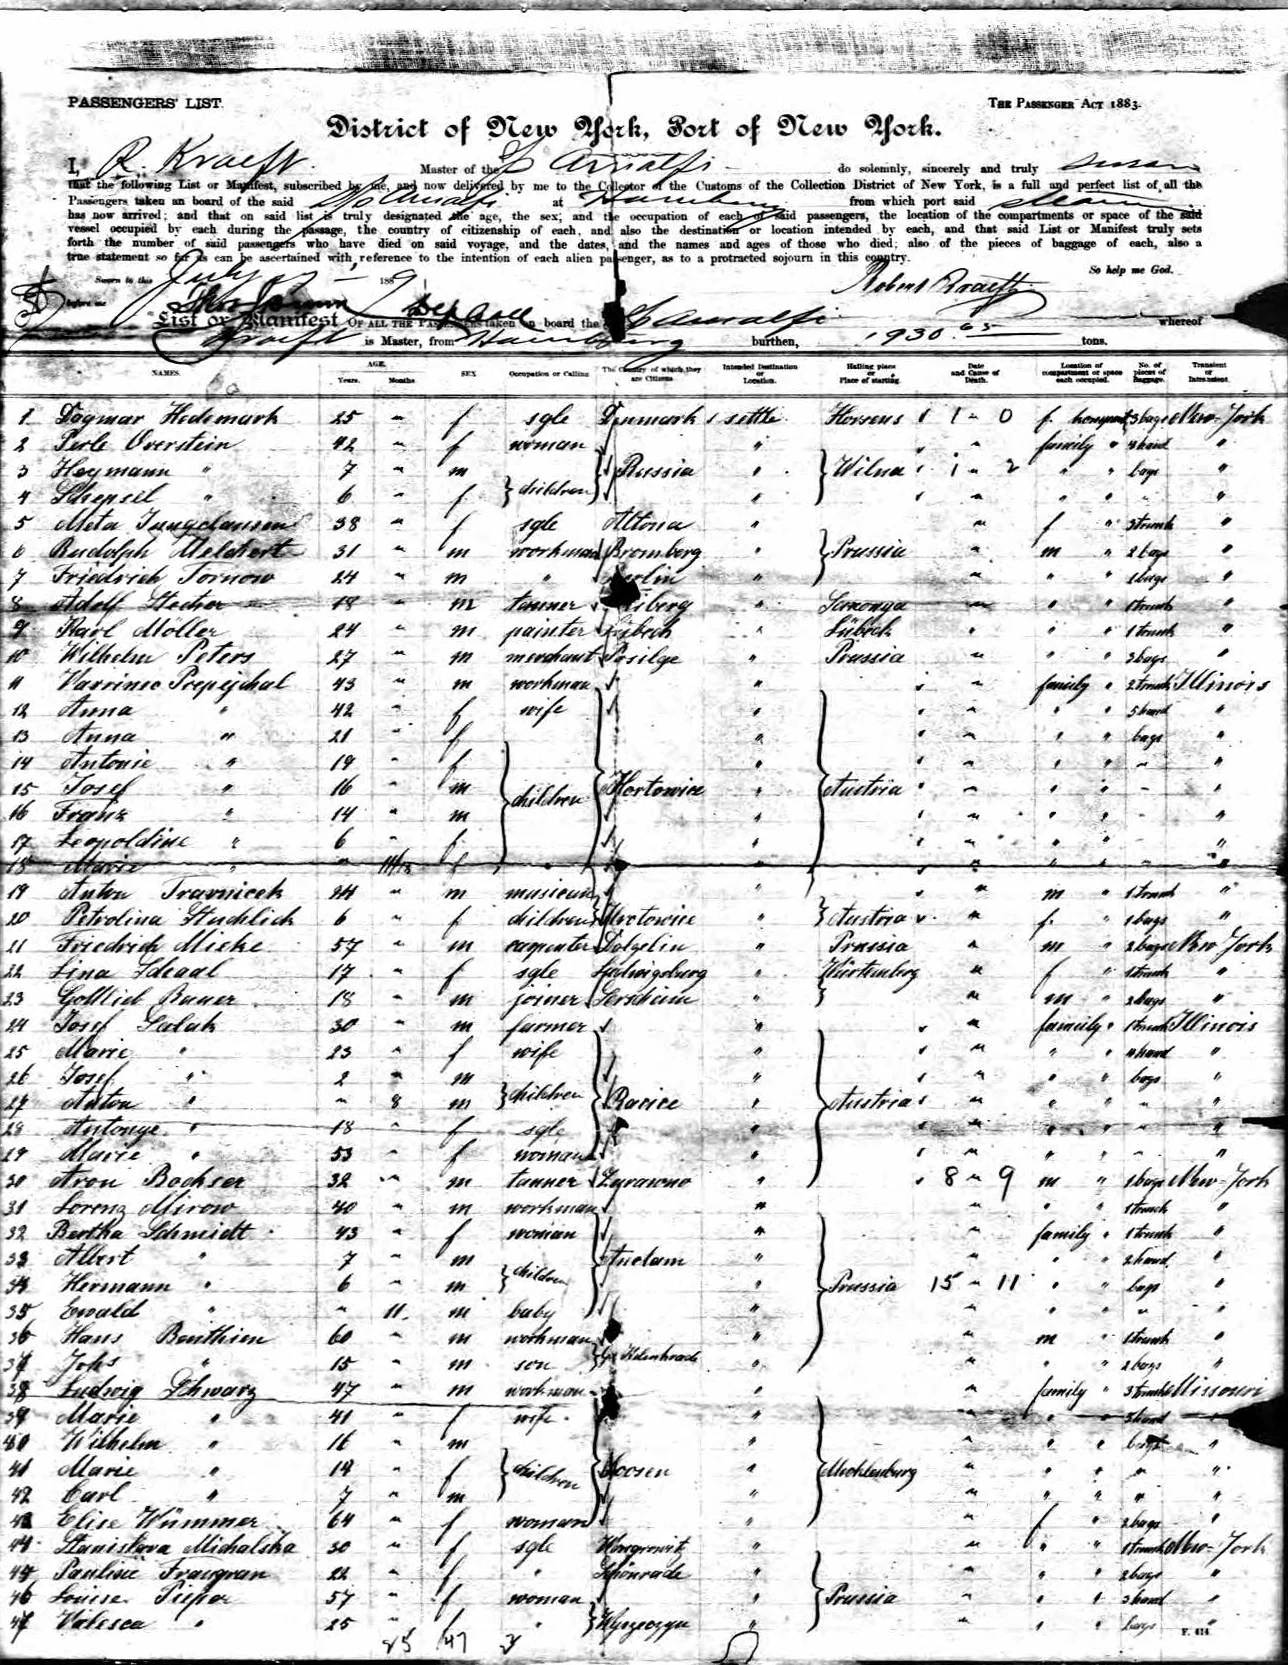 PASSENGERS' LIST. THE PASSENGER ACT 1883.
District of New York, Port of New York.
I, R. Kraeft Master of the Amalfi do solemnly, sincerely and truly swear
that the following List or Manifest, subscribed by me, and now delivered by me to the Collector of the Customs of the Collection District of New York, is a full and perfect list of all the
Passengers taken on board of the said Amalfi at Hamburg from which port said steamer
has now arrived; and that on said list is truly designated the age, the sex; and the occupation of each of said passengers, the location of the compartments or space of the said
vessel occupied by each during the passage, the country of citizenship of each, and also the destination or location intended by each, and that said List or Manifest truly sets
forth the number of said passengers who have died on said voyage, and the dates, and the names and ages of those who died; also of the pieces of baggage of each, also a
true statement so far as can be ascertained with reference to the intention of each alien passenger, as to a protracted sojourn in this country.
Sworn to this July 27 1889 So help me God.
before me Robert Kraeft
List or Manifest OF ALL THE PASSENGERS taken on board the Amalfi whereof
Kraeft is Master, from Hamburg burthen, 1930 65 tons.
NAMES. AGE. Years. Months SEX Occupation or Calling The Country of which they are Citizens. Intended Destination or Location. Halting place or Place of starting. Date and Cause of Death. Location of compartment or space each occupied. No. of pieces of Baggage. Transient or Intransient.
1 Dagmar Hedemark 25 " f sgle Denmark settle Horsens 1 - 0 f. 3 bags New-York
2 Perle Overstein 42 " f woman " " family " 4 hand "
3 Heymann " 7 " m Russia " Wilna 1 - 2 " " bags "
4 Schepsel " 6 " f children " " " " " "
5 Meta Jungclaussen 38 " f sgle Altona " " f " 3 trunk "
6 Rudolph Melchert 31 " m workman Bromberg " Prussia " m " 2 bags "
7 Friedrich Tornow 24 " m " Berlin " " " " 1 bags "
8 Adolf Hecher 18 " m tanner " " " " 1 trunk "
9 Karl Möller 24 " m painter Lübeck " Lübeck " " " 1 trunk "
10 Wilhelm Peters 27 " m merchant Posilge " Prussia " " " 3 bags "
11 43 " m workman " " family " 2 trunk Illinois
12 Anna " 42 " f wife " " " " 5 hand "
13 Anna " 21 " f " " " " bags "
14 Antonie " 19 " f " " " " " "
15 Josef " 16 " m children Hortowice " Austria " " " "
16 Franz " 14 " m " " " " " "
17 Leopoldine " 6 " f " " " " " "
18 Marie " " f " " " " " "
19 Anton Travnicek 24 " m musician " " m " 1 trunk "
20 Petrolina Stuchlick 6 " f children " Austria " f. " 1 bags "
21 Friedrich Mieke 57 " m carpenter Dolgelin " Prussia " m " 2 bags New York
22 Lina Schaal 17 " f sgle Ludwigsburg " Würtemberg " f " 1 trunk "
23 Gottlieb Bauer 18 " m joiner " " m " 2 bags "
24 Josef Salak 30 " m farmer " " family " 1 trunk Illinois
25 Marie " 23 " f wife " " " " 4 hand "
26 Josef " 2 " m " " " " bags "
27 Anton " " 8 m children Racice " Austria " " " " "
28 Antonye " 18 " f sgle " " " " " "
29 Marie " 53 " f woman " " " " " "
30 Aron Bochser 32 " m tanner " 8 - 9 m " 1 bags New-York
31 Lorenz Mirow 40 " m workman " " " " 1 trunk "
32 Bertha Schmidt 43 " f woman " " family " 1 trunk "
33 Albert " 7 " m Anclam " " " " 2 hand "
34 Hermann " 6 " m children " Prussia 15 - 11 " " bags "
35 Ewald " " 11 m baby " " " " " "
36 Hans Benthien 60 " m workman " " m " 1 trunk "
37 Johs " 15 " m son " " " " 2 bags "
38 Ludwig Schwarz 47 " m workman " " family " 3 trunk Missouri
39 Marie " 41 " f wife " " " " 3 hand "
40 Wilhelm " 16 " m " " " " bags "
41 Marie " 14 " f children " Mecklenburg " " " " "
42 Carl " 7 " m " " " " " "
43 Elise Wümmer 64 " f woman " " f " 2 bags "
44 Stanislava Michalska 30 " f sgle Wongrowitz " " " " 1 trunk New-York
45 Pauline 22 " f " Schönrade " " " " 2 bags "
46 Louise Piepor 57 " f woman " Prussia " " " 3 hand "
47 Valesca " 25 " f " " " " " bags "
25 47 F. 414